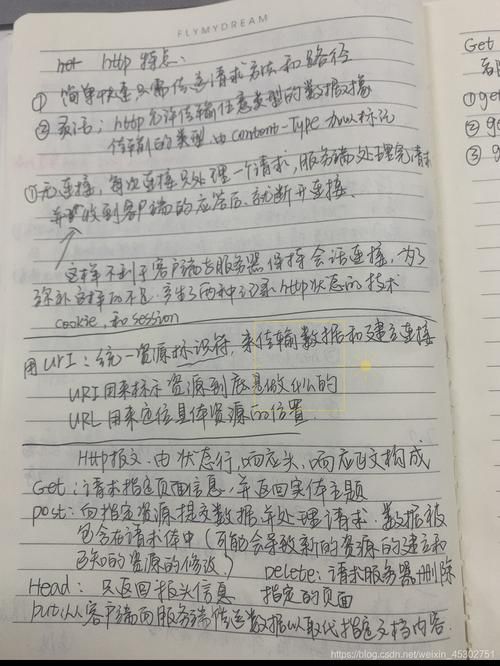 FLYMYDREAM
http 特点:
① 简单快速只需传送请求方法和路径
② 灵活; http允许传输任意类型的数据对象
传输的类型由content-Type加以标记
①无连接, 每次连接只处理一个请求, 服务端处理完请求
并收到客户端的应答后, 就断开连接.
这样不利于客户端与服务器保持会话连接, 为了
弥补这样的不足, 产生了两种记录http状态的技术
cookie, 和session
用URI: 统一资源标识符, 来传输数据和建立连接
URI用来标示资源到底是做什么的
URL 用来定位具体资源的位置.
Http报文, 由状态行, 响应头, 响应正文构成
Get: 请求指定页面信息, 并返回实体主题
post: 向指定资源提交数据并处理请求. 数据被
包含在请求体中 (可能会导致新的资源的建立和
已知的资源的修改)
delete: 请求服务器删除
Head: 只返回报头信息
指定的页面
put: 从客户端向服务端传送数据以取代指定文档内容.
Get
①get
②
③
https://blog.csdn.net/weixin_45302751